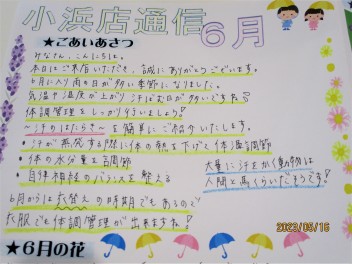 小浜店通信 6月
★ごあいさつ
みなさん、こんにちは。
本日はご来店いただき、誠にありがとうございます。
6月に入り雨の日が多い季節になりました。
気温や湿度が上がり汗ばむ日が多いですね💧
体調管理をしっかり行いましょう!
~汗のはたらき~を簡単にご紹介いたします。
・汗が蒸発する際に体の熱を下げて体温調節
・体の水分量を調節
・自律神経のバランスを整える
大量に汗をかく動物は
人間と馬くらいだそうです!
6月からは衣替えの時期でもあるので
衣服でも体調管理が出来ますね!
2023/06/16
★6月の花